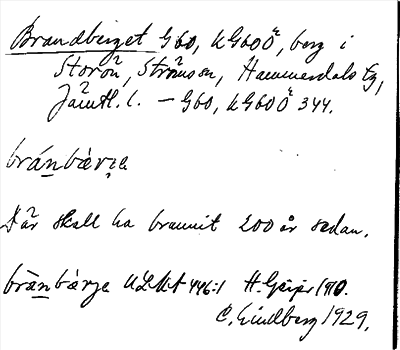 Brandberget G60, KG60Ö, berg i
Storön, Strömson, Hammerdals tg,
Jämtl. l. — G60, KG60Ö 344.
bránbàrje
Där skall ha brunnit 200 år sedan.
brànbárje ULMA 446:1 H. Geijer 1910.
C. Lindberg 1929.